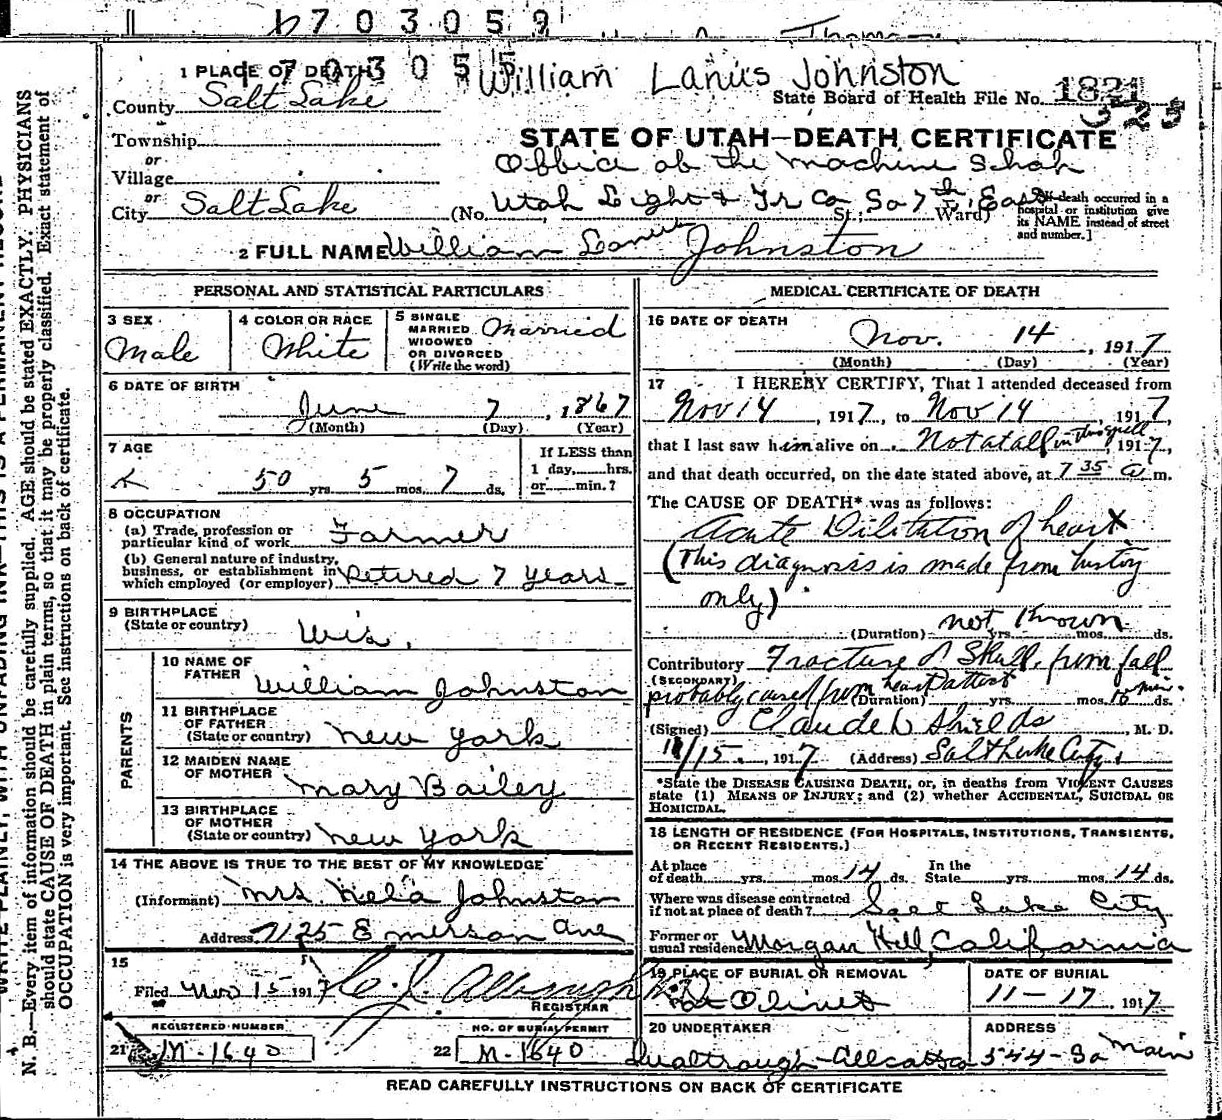 1703059
1703055
William Lanus Johnston
1 PLACE OF DEATH
County Salt Lake
State Board of Health File No. 1821
323
Township
or
Village
or
City Salt Lake
STATE OF UTAH—DEATH CERTIFICATE
Office of the Machine Shop
(No. Utah Light & Tr Co So 7th East St.; Ward)
[If death occurred in a
hospital or institution give
its NAME instead of street
and number.]
2 FULL NAME William Lanus Johnston
PERSONAL AND STATISTICAL PARTICULARS
3 SEX
Male
4 COLOR OR RACE
White
5 SINGLE
MARRIED
WIDOWED
OR DIVORCED
(Write the word)
Married
6 DATE OF BIRTH
June 7, 1867
(Month) (Day) (Year)
7 AGE
50 yrs. 5 mos. 7 ds.
If LESS than
1 day, hrs.
or min.?
8 OCCUPATION
(a) Trade, profession or
particular kind of work Farmer
(b) General nature of industry,
business, or establishment in
which employed (or employer) Retired 7 years
9 BIRTHPLACE
(State or country) Wis.
PARENTS
10 NAME OF
FATHER William Johnston
11 BIRTHPLACE
OF FATHER
(State or country) New York
12 MAIDEN NAME
OF MOTHER Mary Bailey
13 BIRTHPLACE
OF MOTHER
(State or country) New York
14 THE ABOVE IS TRUE TO THE BEST OF MY KNOWLEDGE
(Informant) Mrs Johnston
Address 2125 Emerson Ave
15
Filed Nov 15 1917
REGISTRAR
REGISTERED NUMBER
21 M-1640
NO. OF BURIAL PERMIT
22 M-1640
MEDICAL CERTIFICATE OF DEATH
16 DATE OF DEATH
Nov. 14, 1917
(Month) (Day) (Year)
17 I HEREBY CERTIFY, That I attended deceased from
Nov 14, 1917, to Nov 14, 1917,
that I last saw him alive on Not at all in this spell, 1917,
and that death occurred, on the date stated above, at 7 35 a m.
The CAUSE OF DEATH* was as follows:
Acute Dilitation of heart
(This diagnosis is made from history
only)
(Duration) not known yrs. mos. ds.
Contributory Fracture of Skull, from fall
(SECONDARY)
probably caused from heart attack (Duration) yrs. mos. 10 min. ds.
(Signed) Claude L Shields, M. D.
11/15, 1917 (Address) Salt Lake City
*State the DISEASE CAUSING DEATH, or, in deaths from VIOLENT CAUSES
state (1) MEANS OF INJURY; and (2) whether ACCIDENTAL, SUICIDAL OR
HOMICIDAL.
18 LENGTH OF RESIDENCE (FOR HOSPITALS, INSTITUTIONS, TRANSIENTS,
OR RECENT RESIDENTS.)
At place
of death yrs. mos. 14 ds.
In the
State yrs. mos. 14 ds.
Where was disease contracted
if not at place of death? Salt Lake City
Former or
usual residence Morgan Hill, California
19 PLACE OF BURIAL OR REMOVAL
Mt Olivet
DATE OF BURIAL
11-17 1917
20 UNDERTAKER
ADDRESS
544 So Main
READ CAREFULLY INSTRUCTIONS ON BACK OF CERTIFICATE
N. B.—Every item of information should be carefully supplied. AGE should be stated EXACTLY. PHYSICIANS
should state CAUSE OF DEATH in plain terms, so that it may be properly classified. Exact statement of
OCCUPATION is very important. See instructions on back of certificate.